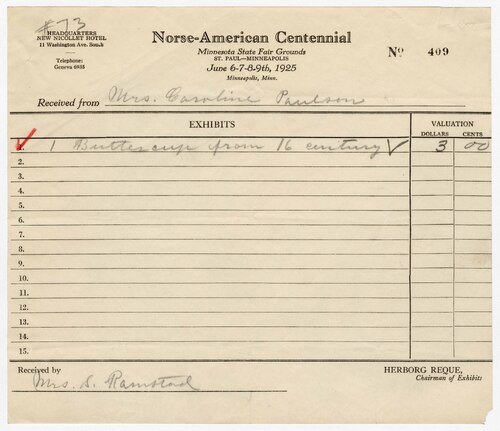 #73
HEADQUARTERS
NEW NICOLLET HOTEL
11 Washington Ave. South
Telephone:
Geneva 6935
Norse-American Centennial
Minnesota State Fair Grounds
ST. PAUL—MINNEAPOLIS
June 6-7-8-9th, 1925
Minneapolis, Minn.
No 409
Received from Mrs. Caroline Paulson
EXHIBITS VALUATION
DOLLARS CENTS
1. 1 Buttercup from 16 century 3 00
2.
3.
4.
5.
6.
7.
8.
9.
10.
11.
12.
13.
14.
15.
Received by
Mrs. S. Ramstad
HERBORG REQUE,
Chairman of Exhibits